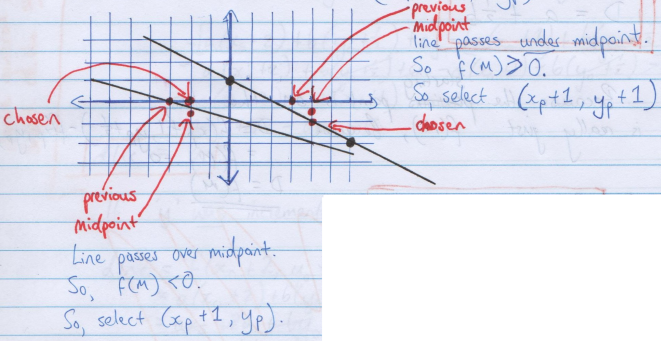 previous
midpoint
line passes under midpoint.
So f(M) ⩾ 0.
So, select (xp+1, yp+1)
chosen
chosen
previous
midpoint
Line passes over midpoint.
So, f(M) < 0.
So, select (xp+1, yp).